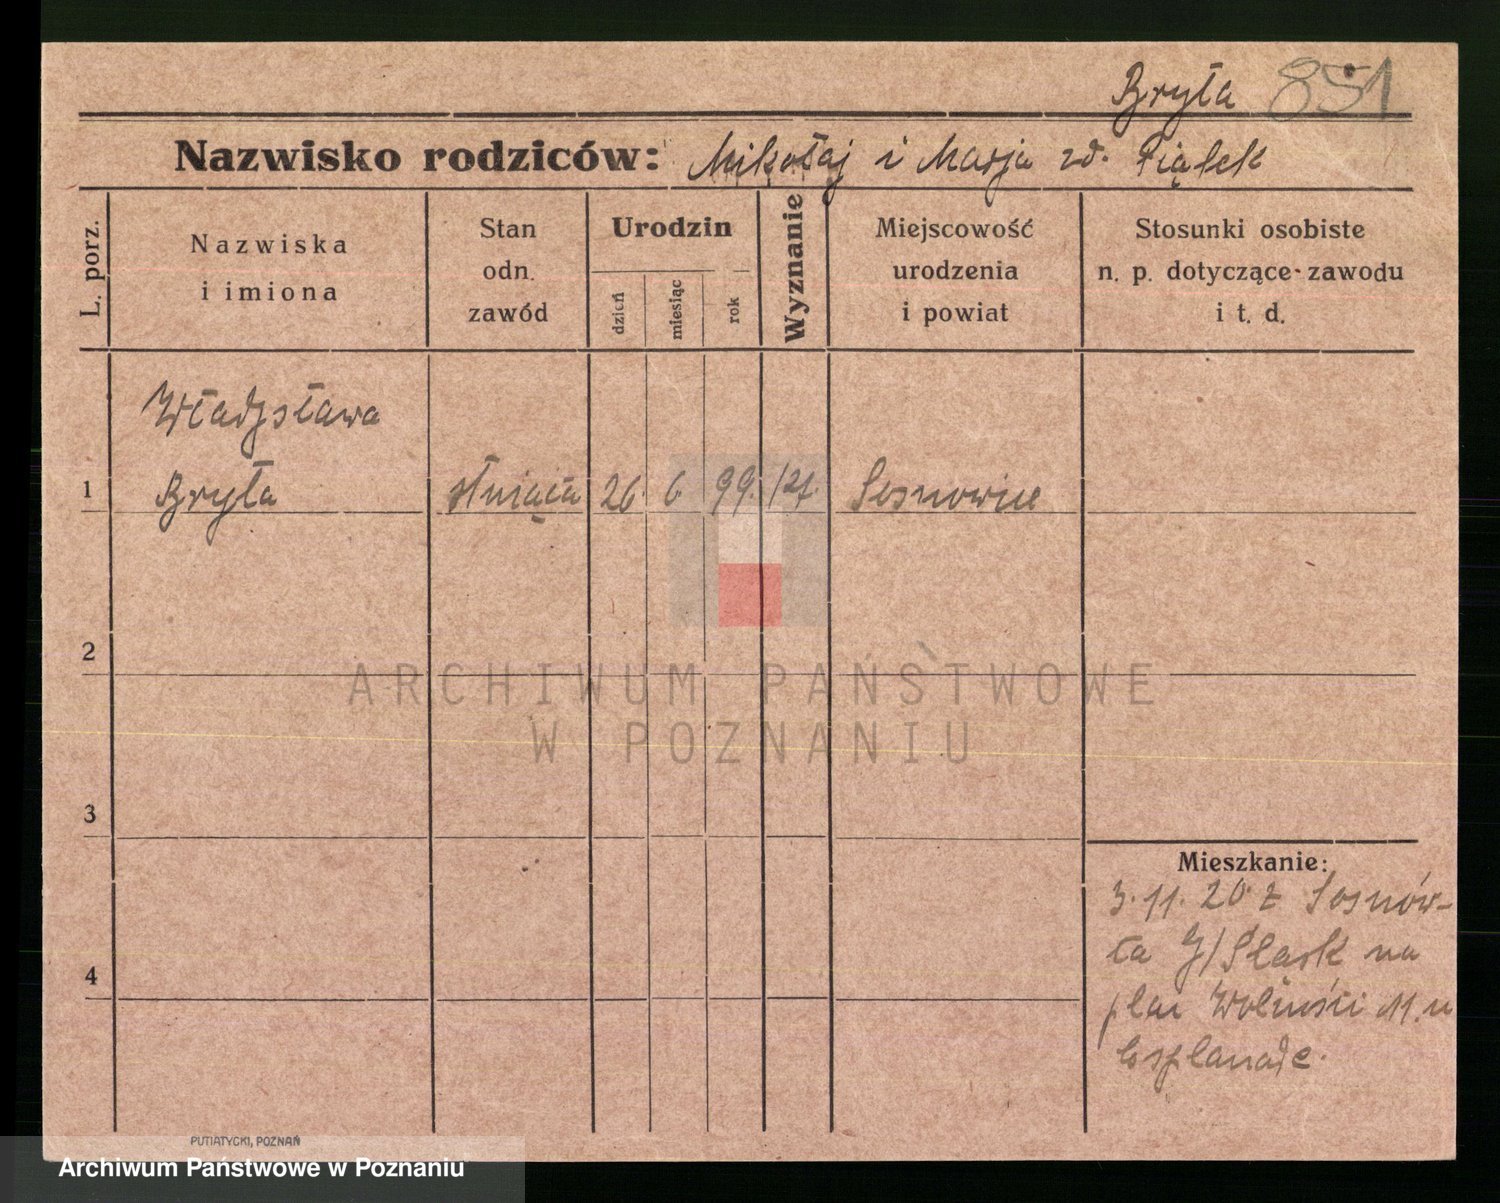 Bryła 851
Nazwisko rodziców: Mikołaj i Marja zd. Piątek
L. porz.
Nazwiska
i imiona
Stan
odn.
zawód
Urodzin
dzień
miesiąc
rok
Wyznanie
Miejscowość
urodzenia
i powiat
Stosunki osobiste
n. p. dotyczące zawodu
i t. d.
Władysława
1 Bryła służąca 26. 6. 99. Sosnowice
2
3
4
Mieszkanie:
3.11.20 z Sosnów-
ca G/Śląsk na
plac Wolności 11. u
Esplanade.
PUTIATYCKI, POZNAŃ
ARCHIWUM PAŃSTWOWE
W POZNANIU
Archiwum Państwowe w Poznaniu